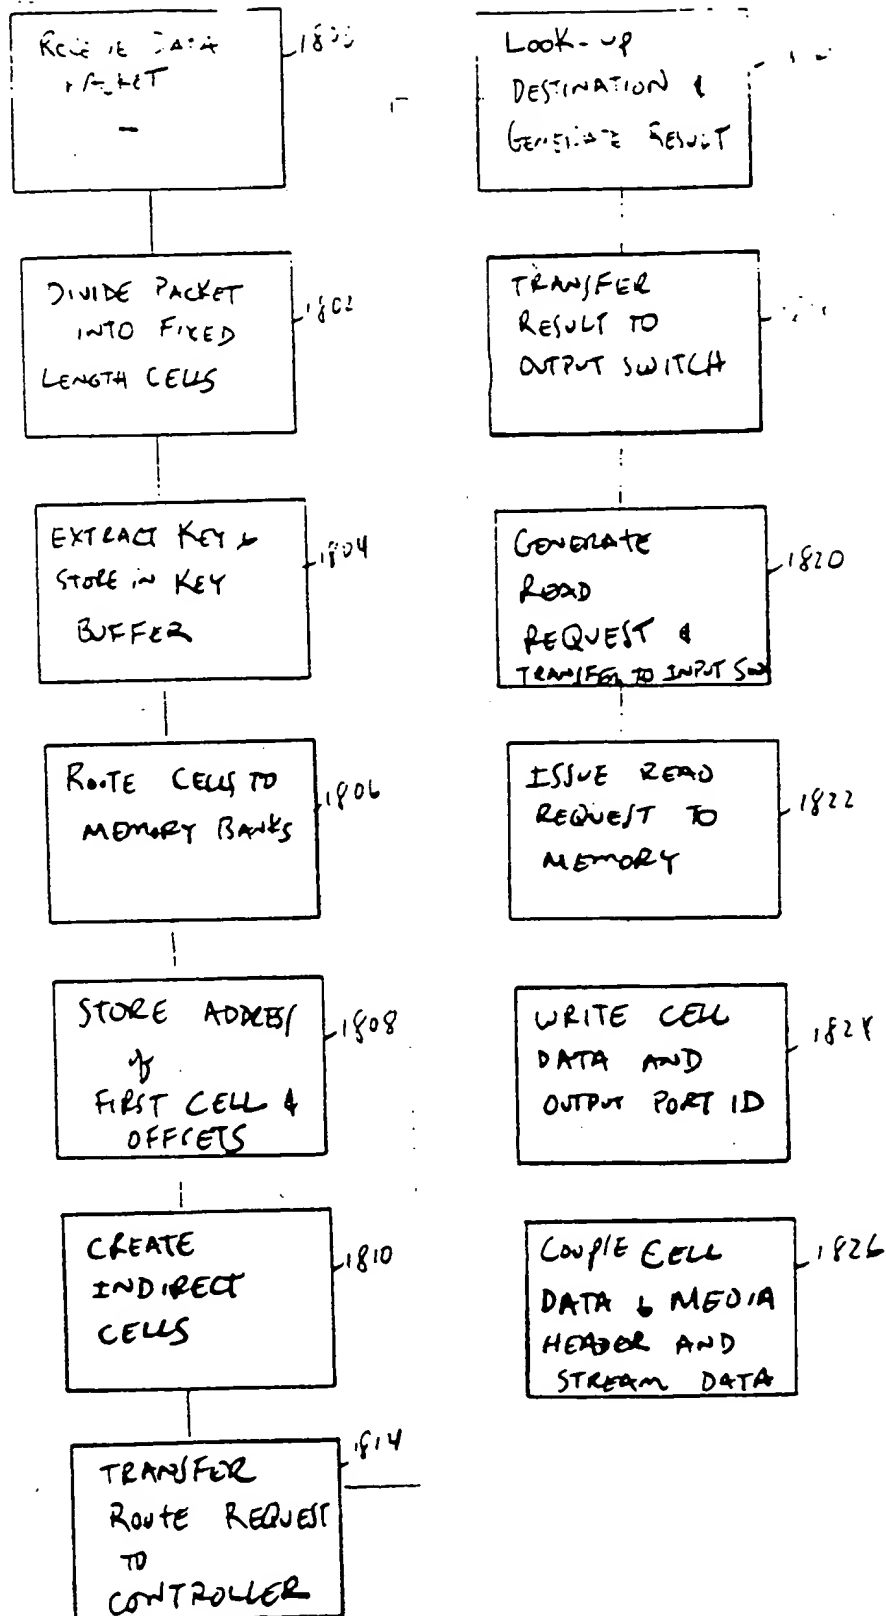 DATA
DIVIDE PACKET
INTO FIXED
LENGTH CELLS
1802
EXTRACT KEY &
STORE IN KEY
BUFFER
1804
ROUTE CELLS TO
MEMORY BANKS
1806
STORE ADDRESS
of
FIRST CELL &
OFFSETS
1808
CREATE
INDIRECT
CELLS
1810
TRANSFER
ROUTE REQUEST
TO
CONTROLLER
1814
LOOK-UP
DESTINATION &
GENERATE RESULT
TRANSFER
RESULT TO
OUTPUT SWITCH
GENERATE
READ
REQUEST &
TRANSFER TO INPUT SW
1820
ISSUE READ
REQUEST TO
MEMORY
1822
WRITE CELL
DATA AND
OUTPUT PORT ID
1824
COUPLE CELL
DATA & MEDIA
HEADER AND
STREAM DATA
1826